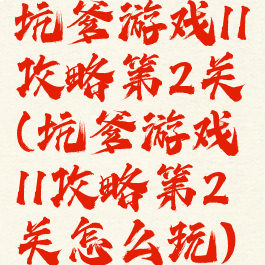 坑爹游戏11
攻略第2关
(坑爹游戏
11攻略第2
关怎么玩)